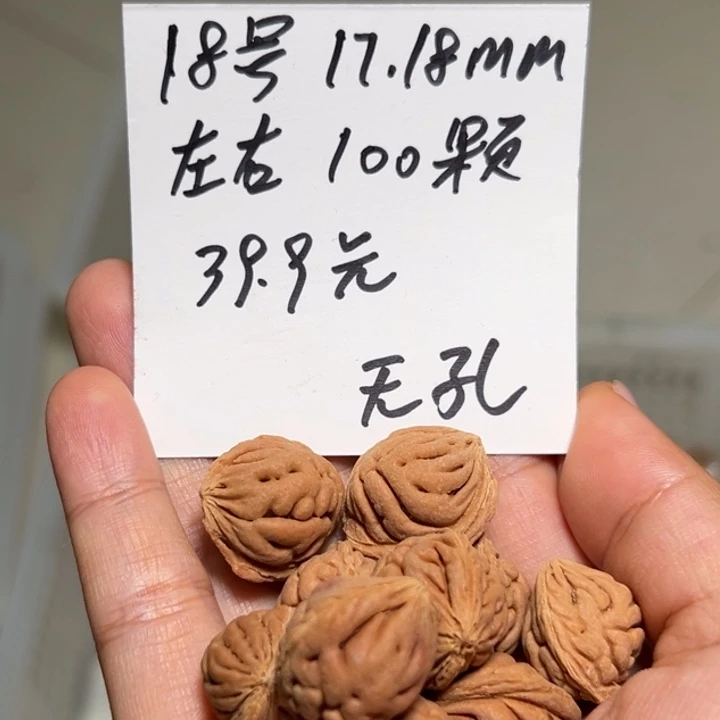 18号 17.18mm
左右 100颗
39.9元
无孔